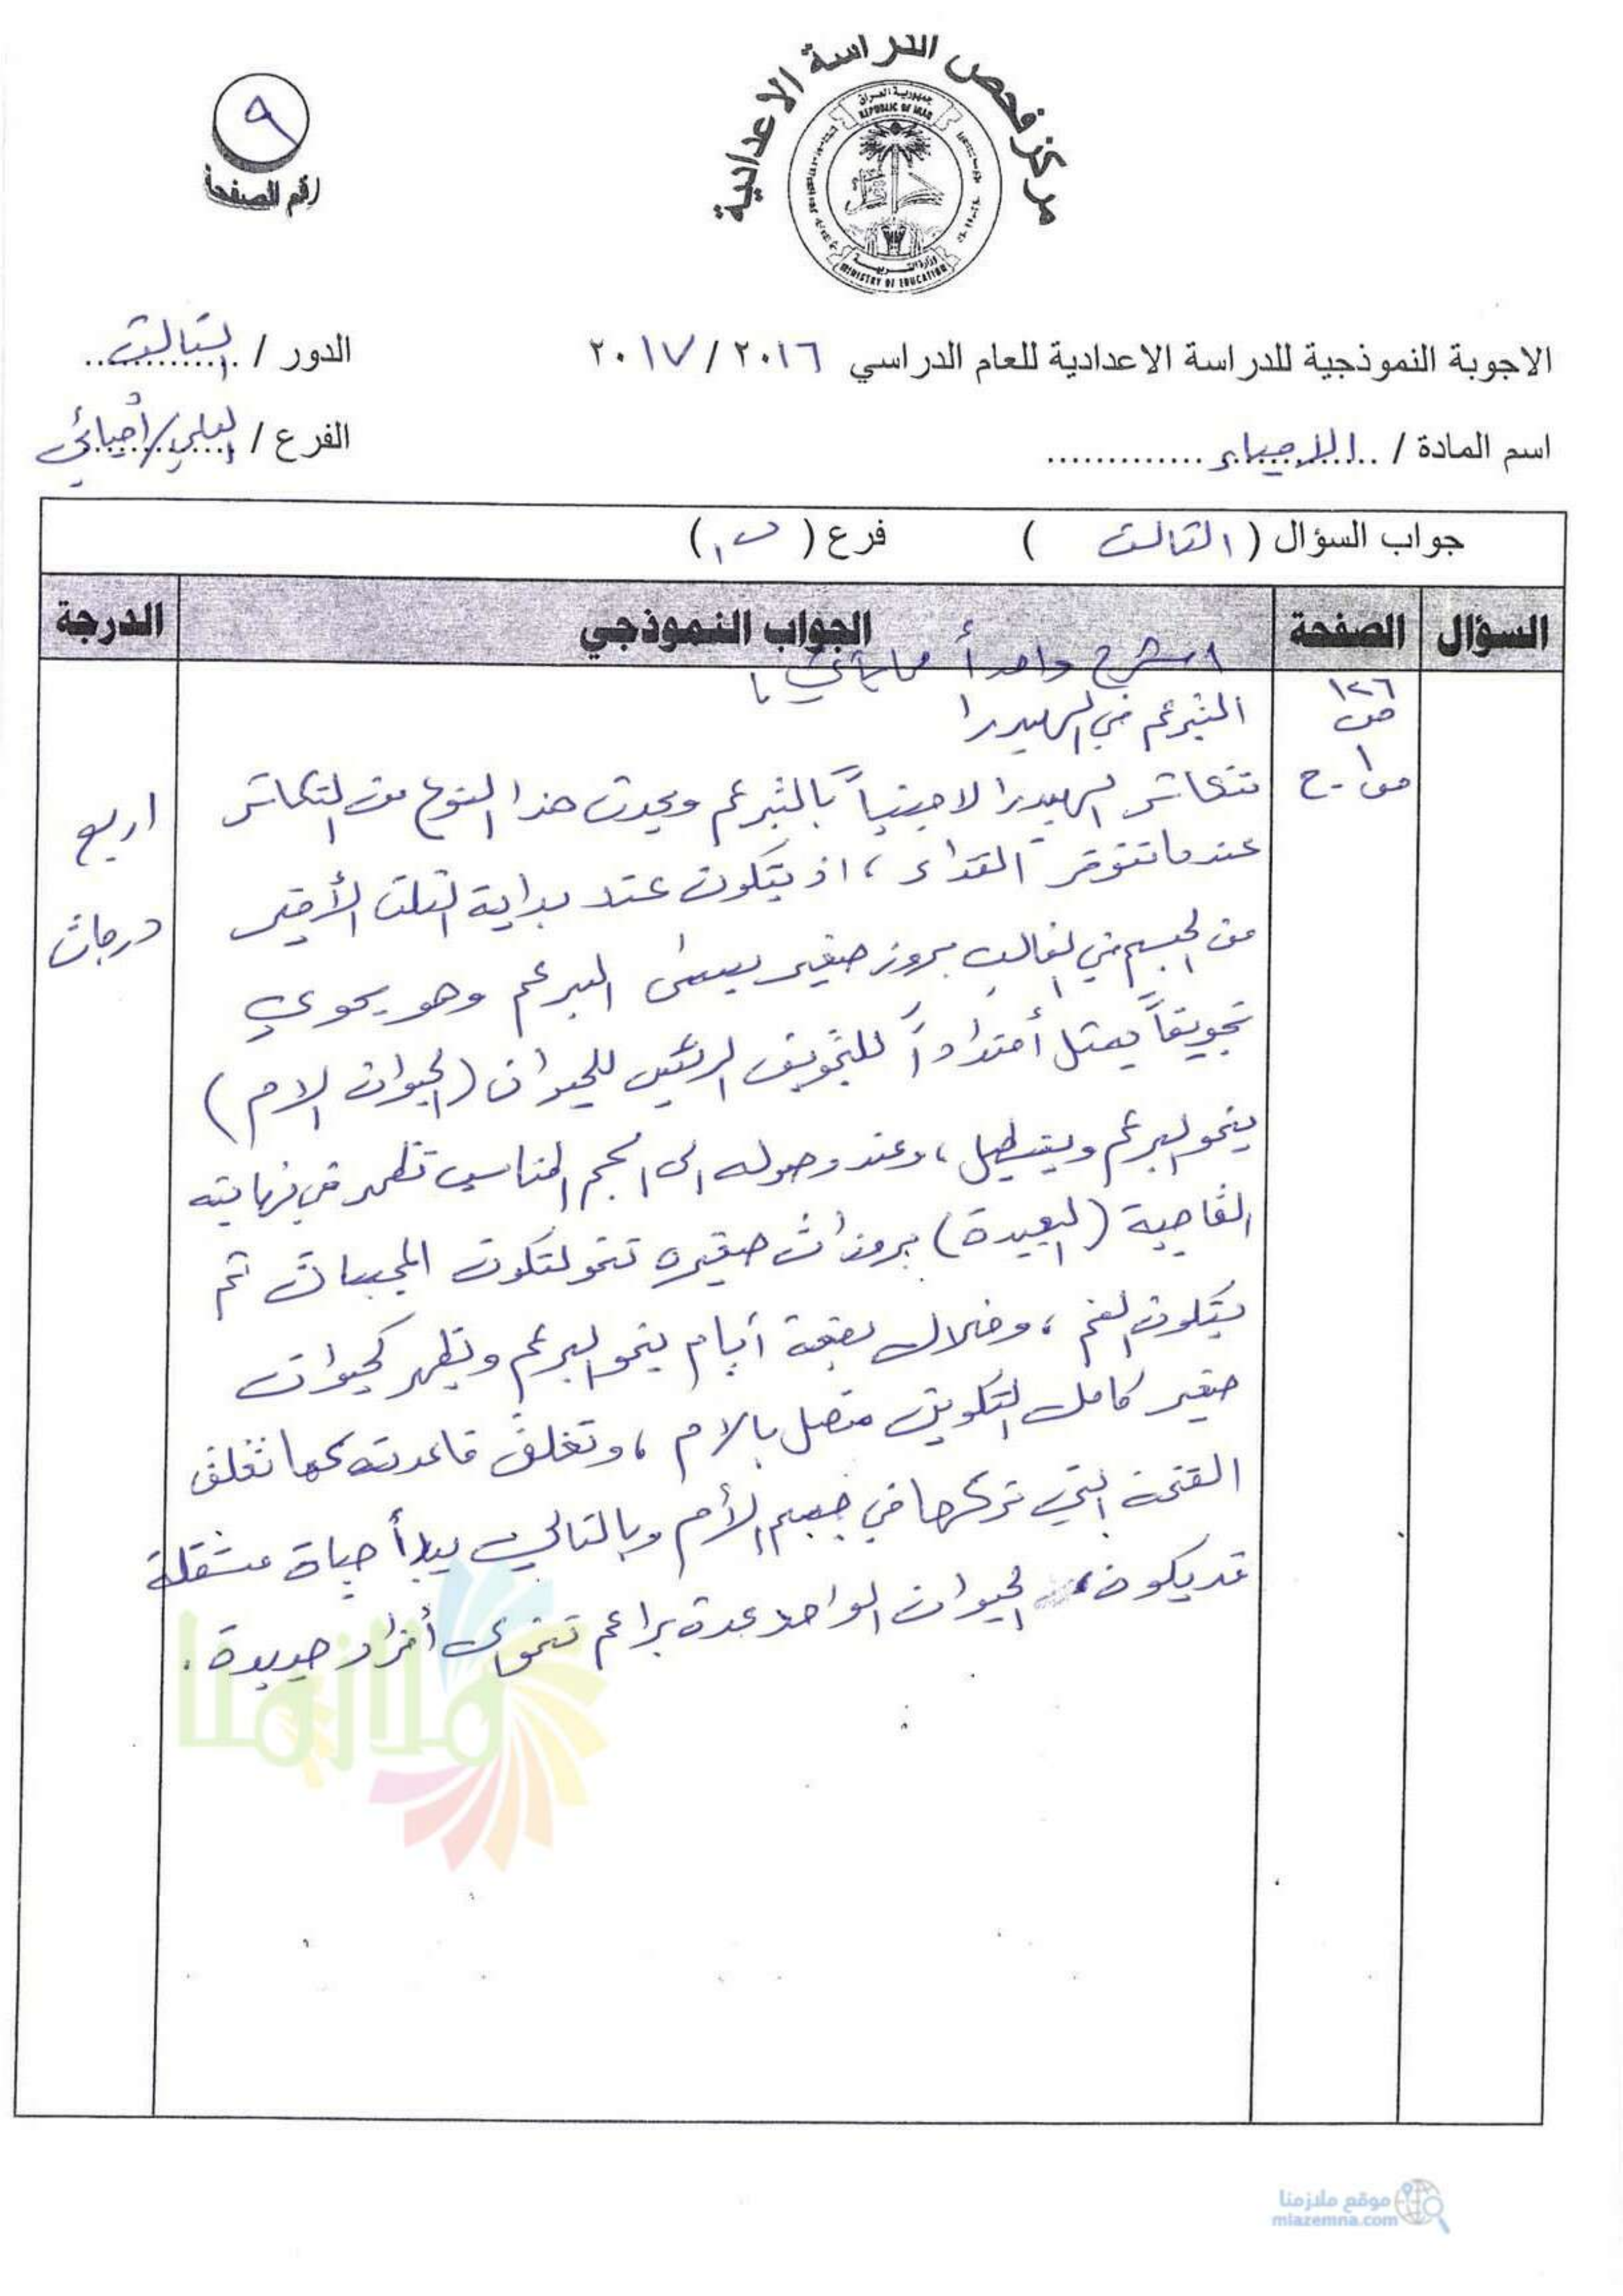 مركز فحص الدراسة الاعدادية
جمهورية العراق
REPUBLIC OF IRAQ
وزارة التربية
MINISTRY OF EDUCATION
٩
رقم الصفحة
الاجوبة النموذجية للدراسة الاعدادية للعام الدراسي ٢٠١٦ / ٢٠١٧
الدور / الثالث
اسم المادة / الاحياء
الفرع / العلمي/أحيائي
جواب السؤال ( الثالث ) فرع ( ب١ )
السؤال الصفحة الجواب النموذجي الدرجة
اشرح واحداً مما يأتي :
١٢٦
ص
التبرعم في الهيدرا
تتكاثر الهيدرا لاجنسياً بالتبرعم ويحدث هذا النوع من التكاثر
اربع
درجات
عندما تتوفر الغذاء ، اذ يتكون عند بداية الثلث الأخير
من الجسم في الغالب بروز صغير يسمى البرعم وهو يحوي
تجويفاً يمثل أمتداداً للتجويف الرئيس للحيوان (الحيوان الام)
ينمو البرعم ويستطيل ، وعند وصوله الى الحجم المناسب تظهر في نهايته
القاصية (البعيدة) بروزات صغيره تنمو لتكون المجسات ثم
يتكون الفم ، وخلال بضعة أيام ينمو البرعم ويظهر كحيوان
صغير كامل التكوين متصل بالام ، وتغلق قاعدته كما تغلق
الفتحة التي تركها في جسم الأم وبالتالي يبدأ حياة مستقلة
قد يكون الحيوان الواحد عدة براعم تنمو الى أفراد جديدة .
ملازمنا
موقع ملازمنا
mlazemna.com